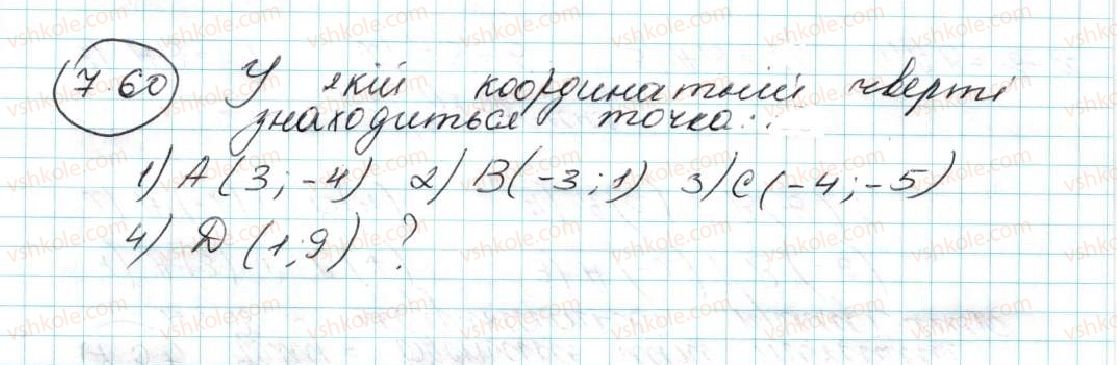 7.60 У якій координатній чверті
знаходиться точка:
1) A (3; -4) 2) B (-3; 1) 3) C (-4; -5)
4) D (1; 9) ?